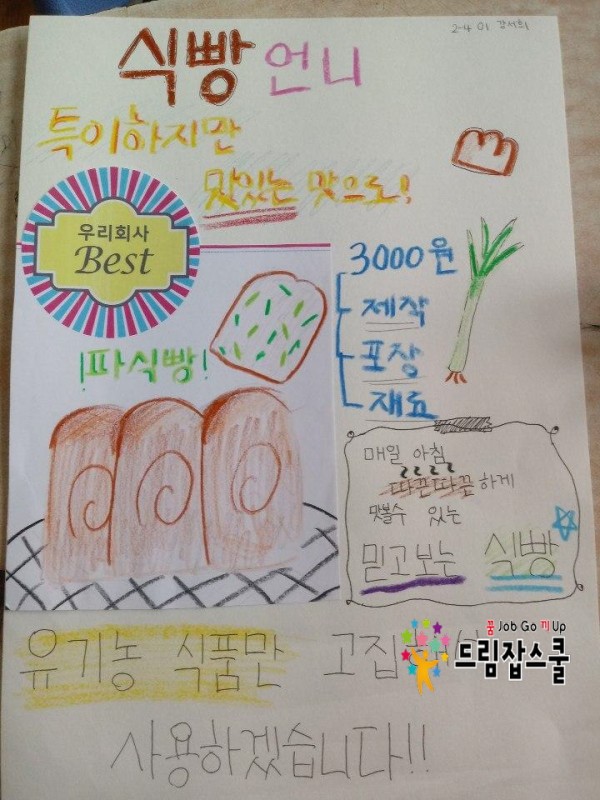 2-4 01 강서희
식빵언니
특이하지만
맛있는 맛으로!
우리회사
Best
3000원
제작
포장
재료
!파식빵!
매일 아침
따끈따끈하게
맛볼수 있는
믿고보는 식빵
꿈 Job Go 끼 Up
드림잡스쿨
유기농 식품만 고집
사용하겠습니다!!